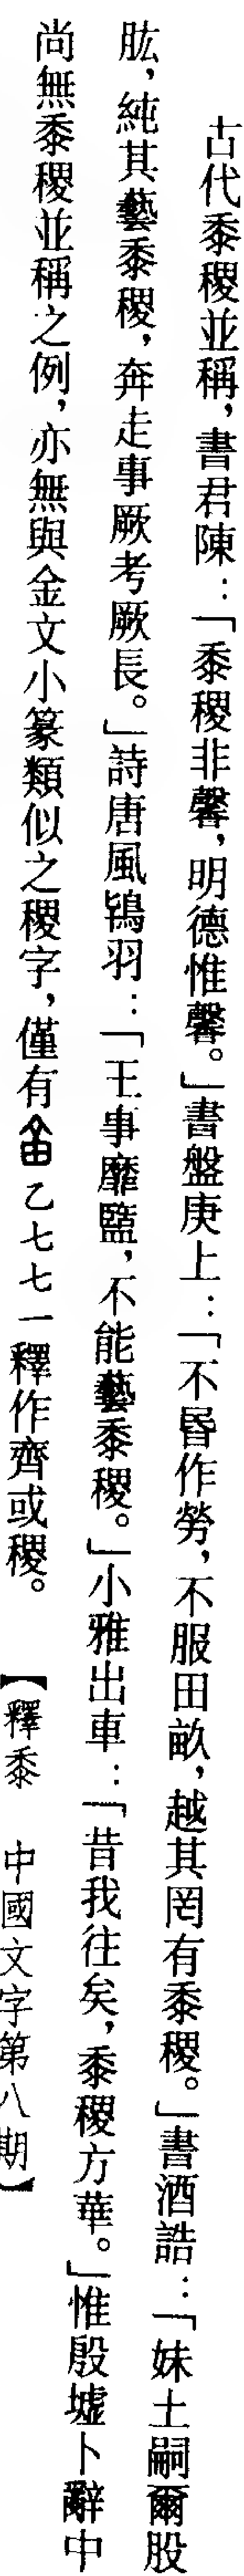 古代黍稷並稱，書君陳：「黍稷非馨，明德惟馨。」書盤庚上：「不昬作勞，不服田畝，越其罔有黍稷。」書酒誥：「妹土嗣爾股
肱，純其藝黍稷，奔走事厥考厥長。」詩唐風鴇羽：「王事靡盬，不能藝黍稷。」小雅出車：「昔我往矣，黍稷方華。」惟殷墟卜辭中
尚無黍稷並稱之例，亦無與金文小篆類似之稷字，僅有乙七七一釋作齊或稷。　【釋黍　中國文字第八期】